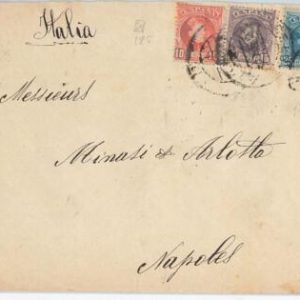 Italia
Messieurs
Minasi & Arlotta
Napoles